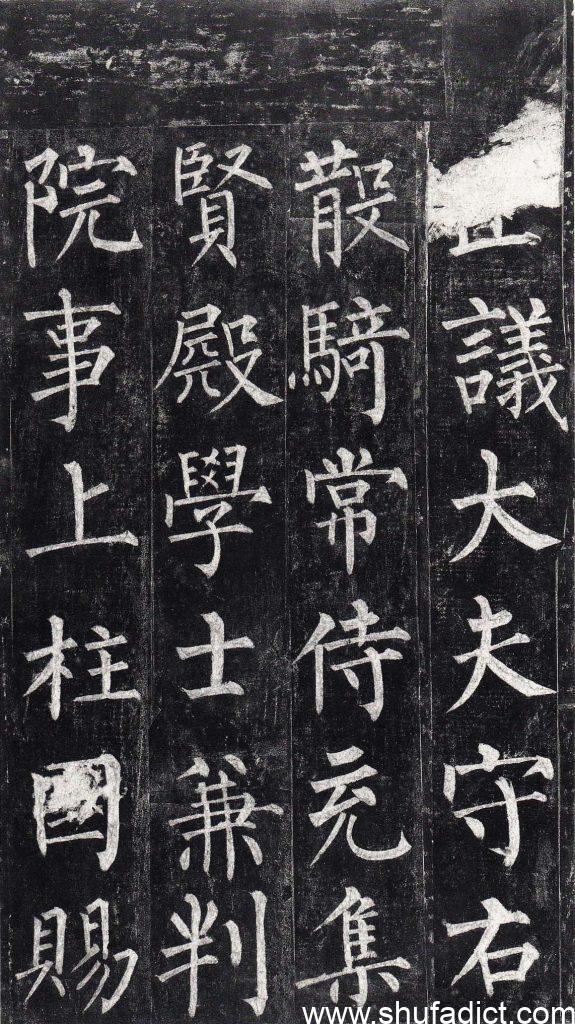 正議大夫守右
散騎常侍充集
賢殿學士兼判
院事上柱國賜
www.shufadict.com